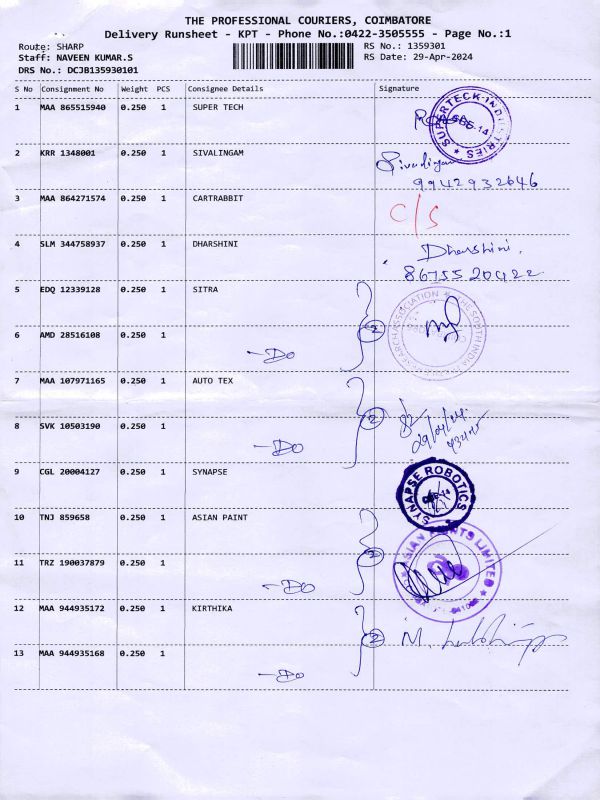 THE PROFESSIONAL COURIERS, COIMBATORE
Delivery Runsheet - KPT - Phone No.:0422-3505555 - Page No.:1
Route: SHARP
RS No.: 1359301
Staff: NAVEEN KUMAR.S
RS Date: 29-Apr-2024
DRS No.: DCJB135930101
S No Consignment No Weight PCS Consignee Details Signature
1 MAA 865515940 0.250 1 SUPER TECH
SUPERTECK INDUSTRIES
2 KRR 1348001 0.250 1 SIVALINGAM Sivalingam
9942932646
3 MAA 864271574 0.250 1 CARTRABBIT C/S
4 SLM 344758937 0.250 1 DHARSHINI Dharshini.
86755 20422
5 EDQ 12339128 0.250 1 SITRA
THE SOUTH INDIA RESEARCH ASSOCIATION
6 AMD 28516108 0.250 1 2
-Do
7 MAA 107971165 0.250 1 AUTO TEX
8 SVK 10503190 0.250 1 2 29/04/24
-Do
9 CGL 20004127 0.250 1 SYNAPSE
SYNAPSE ROBOTICS
10 TNJ 859658 0.250 1 ASIAN PAINT
ASIAN PAINTS LIMITED
11 TRZ 190037879 0.250 1 2
-Do
12 MAA 944935172 0.250 1 KIRTHIKA 2 M.
13 MAA 944935168 0.250 1
-Do